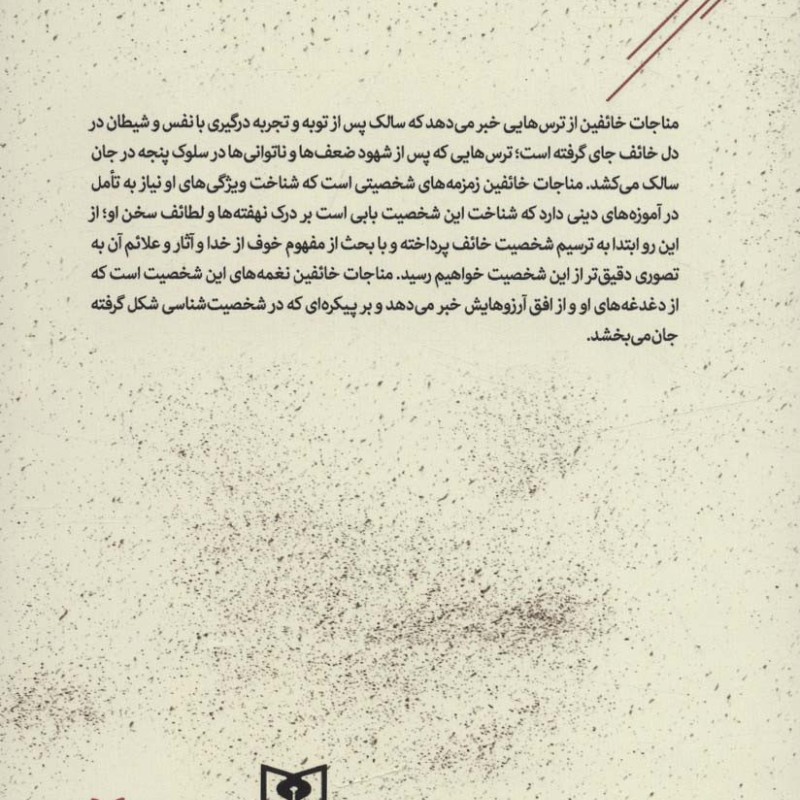 مناجات خائفین از ترس‌هایی خبر می‌دهد که سالک پس از توبه و تجربه درگیری با نفس و شیطان در
دل خائف جای گرفته است؛ ترس‌هایی که پس از شهود ضعف‌ها و ناتوانی‌ها در سلوک پنجه در جان
سالک می‌کشد. مناجات خائفین زمزمه‌های شخصیتی است که شناخت ویژگی‌های او نیاز به تأمل
در آموزه‌های دینی دارد که شناخت این شخصیت بابی است بر درک نهفته‌ها و لطائف سخن او؛ از
این رو ابتدا به ترسیم شخصیت خائف پرداخته و با بحث از مفهوم خوف از خدا و آثار و علائم آن به
تصوری دقیق‌تر از این شخصیت خواهیم رسید. مناجات خائفین نغمه‌های این شخصیت است که
از دغدغه‌های او و از افق آرزوهایش خبر می‌دهد و بر پیکره‌ای که در شخصیت‌شناسی شکل گرفته
جان می‌بخشد.